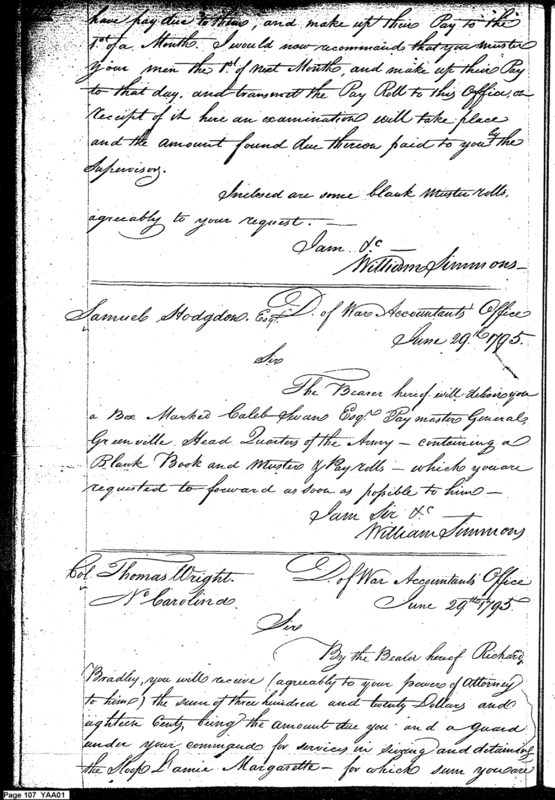 have pay due to them, and make up their Pay to the
1st of a Month. I would now recommend that you muster
your men the 1st of next Month, and make up their Pay
to that day. and transmit the Pay Roll to this Office, on
receipt of it here an examination will take place
and the amount found due thereon paid to you by the
Supervisor.
Inclosed are some blank muster rolls,
agreeably to your request. —
I am &c —
William Simmons —
Samuel Hodgdon. Esqr. D. of War Accountants' Office
June 29th 1795.
Sir
The Bearer hereof will deliver you
a Box Marked Caleb Swan Esqr. Paymaster General,
Greenville Head Quarters of the Army — containing a
Blank Book and Muster & Pay rolls — which you are
requested to forward as soon as possible to him —
I am Sir &c
William Simmons
Col. Thomas Wright. D of War Accountants' Office
No Carolina. June 29th 1795
Sir
By the Bearer hereof Richard
Bradley, you will receive (agreeably to your power of Attorney
to him) the sum of three hundred and twenty Dollars and
eighteen Cents, being the amount due you and a guard
under your command for services in seizing and detaining
the Sloop L'amie Margarette — for which sum you are
Page 107 YAA01